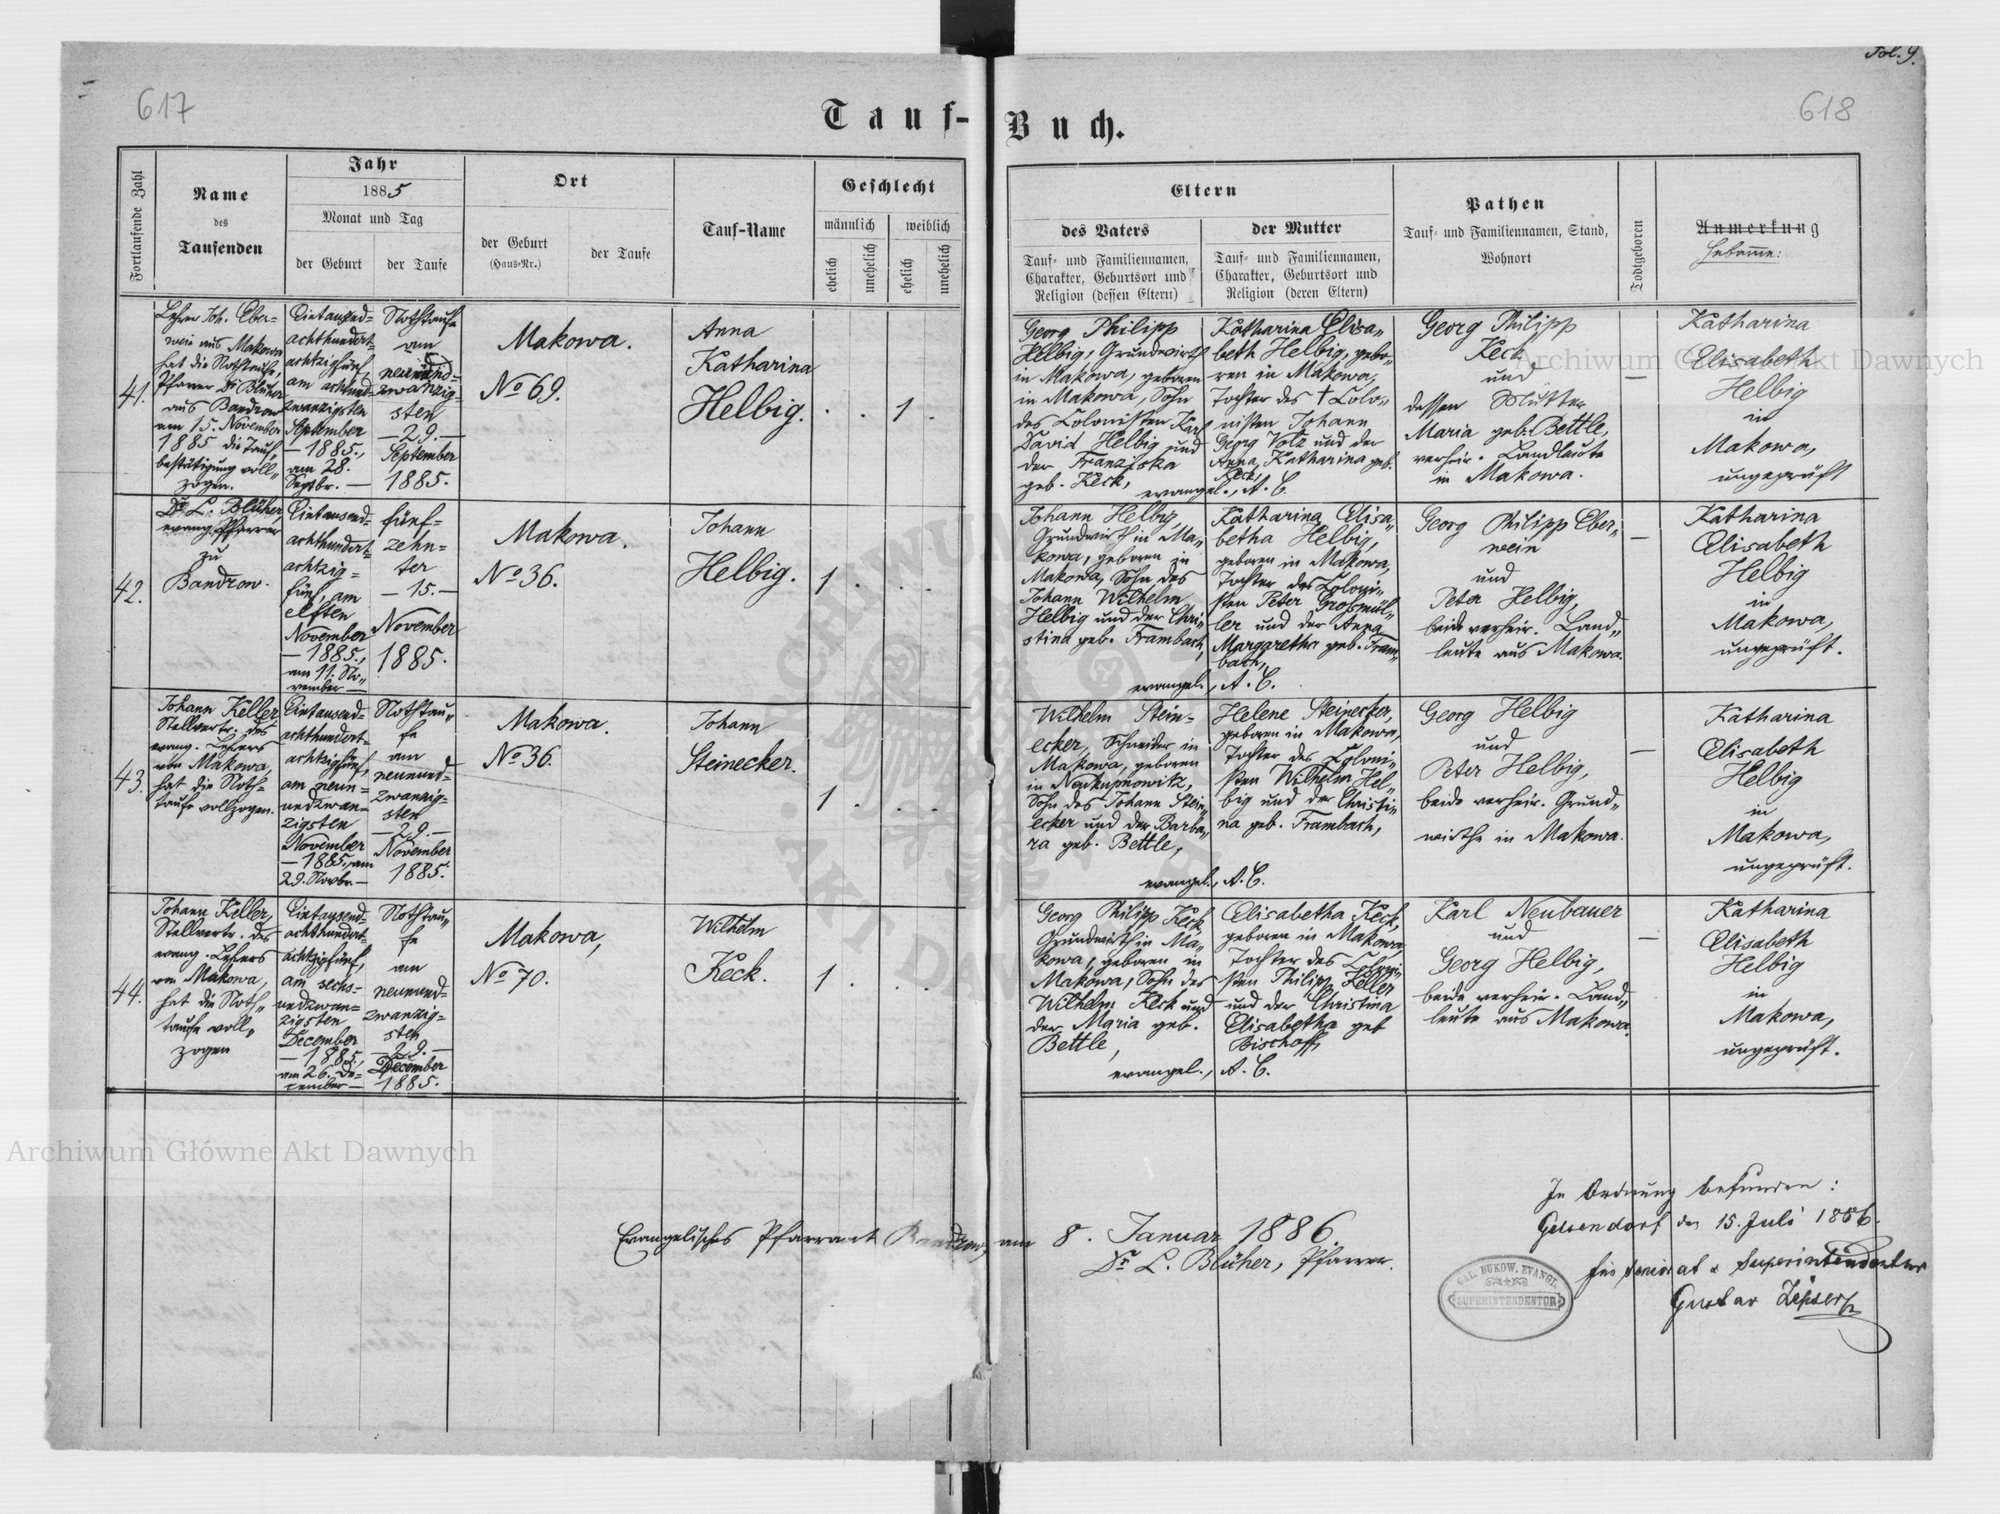 Fol. 9.
617
618
Tauf-Buch.
Fortlaufende Zahl
Name
des
Taufenden
Jahr
1885
Monat und Tag
der Geburt
der Taufe
Ort
der Geburt
(Haus-Nr.)
der Taufe
Tauf-Name
Geschlecht
männlich
weiblich
ehelich
unehelich
ehelich
unehelich
Eltern
des Vaters
Tauf- und Familiennamen,
Charakter, Geburtsort und
Religion (dessen Eltern)
der Mutter
Tauf- und Familiennamen,
Charakter, Geburtsort und
Religion (deren Eltern)
Pathen
Tauf- und Familiennamen, Stand,
Wohnort
Todtgeboren
Anmerkung
Hebamme:
41.
Lehrer Joh. Eber-
wein aus Makowa
hat die Nothtaufe,
Pfarrer Dr Blüher
aus Bandrow
am 15. November
1885 die Tauf-
bestätigung voll-
zogen.
Eintausend-
achthundert-
achtzigfünf,
am achtund-
zwanzigsten
September
— 1885.,
am 28.
Septbr. —
Nothtaufe
am
neunund-
zwanzig-
sten
— 29. —
September
1885.
Makowa.
No 69.
Anna
Katharina
Helbig.
1
Georg Philipp
Helbig, Grundwirth
in Makowa, geboren
in Makowa, Sohn
des Colonisten Karl
David Helbig und
der Franziska
geb. Keck,
Katharina Elisa-
beth Helbig, gebo-
ren in Makowa,
Tochter des † Colo-
nisten Johann
Georg Volz und der
Anna Katharina geb.
Keck,
evangel., A. C.
Georg Philipp
Keck
und
dessen Mutter
Maria geb. Bettle,
verheir. Landleute
in Makowa.
—
Katharina
Elisabeth
Helbig
in
Makowa,
ungeprüft
42.
Dr L. Blüher,
evang. Pfarrer
zu
Bandrow.
Eintausend-
achthundert-
achtzig-
fünf, am
elften
November
— 1885.,
am 11. No-
vember —
fünf-
zehn-
ter
— 15. —
November
1885.
Makowa.
No 36.
Johann
Helbig.
1
Johann Helbig,
Grundwirth in Ma-
kowa, geboren in
Makowa, Sohn des
Johann Wilhelm
Helbig und der Chri-
stina geb. Frambach,
Katharina Elisa-
betha Helbig,
geboren in Makowa,
Tochter des Coloni-
sten Peter Grosmül-
ler und der Anna
Margaretha geb. Fram-
bach,
evangel., A. C.
Georg Philipp Eber-
wein
und
Peter Helbig,
beide verheir. Land-
leute aus Makowa.
—
Katharina
Elisabeth
Helbig
in
Makowa,
ungeprüft.
43.
Johann Keller
Stellvertr. des
evang. Lehrers
von Makowa,
hat die Noth-
taufe vollzogen.
Eintausend-
achthundert-
achtzigfünf,
am neun-
undzwan-
zigsten
November
— 1885., am
29. Novbr. —
Nothtau-
fe
am
neunund-
zwanzig-
sten
— 29. —
November
1885.
Makowa.
No 36.
Johann
Steinecker.
1
Wilhelm Stein-
ecker, Schneider in
Makowa, geboren
in
Sohn des Johann Stein-
ecker und der Barba-
ra geb. Bettle,
Helene Steinecker,
geboren in Makowa,
Tochter des Coloni-
sten Wilhelm Hel-
big und der Christi-
na geb. Frambach,
evangel., A. C.
Georg Helbig
und
Peter Helbig,
beide verheir. Grund-
wirthe in Makowa.
—
Katharina
Elisabeth
Helbig
in
Makowa,
ungeprüft.
44.
Johann Keller,
Stellvertr. des
evang. Lehrers
von Makowa,
hat die Noth-
taufe voll-
zogen
Eintausend-
achthundert-
achtzigfünf,
am sechs-
undzwan-
zigsten
December
— 1885.,
am 26. De-
cember —
Nothtau-
fe
am
neunund-
zwanzig-
sten
— 29. —
December
1885.
Makowa,
No 70.
Wilhelm
Keck.
1
Georg Philipp Keck,
Grundwirth in Ma-
kowa, geboren in
Makowa, Sohn des
Wilhelm Keck und
der Maria geb.
Bettle,
Elisabetha Keck,
geboren in Makowa,
Tochter des Coloni-
sten Philipp Keller
und der Christina
Elisabetha geb
Bischoff,
evangel., A. C.
Karl Neubauer
und
Georg Helbig,
beide verheir. Land-
leute aus Makowa.
—
Katharina
Elisabeth
Helbig
in
Makowa,
ungeprüft.
Evangelisches Pfarramt Bandrow, am 8. Januar 1886.
Dr L. Blüher, Pfarrer.
In Ordnung befunden:
Gelsendorf den 15. Juli 1886.
für Seniorat & Superintendentur
Gustav Zipser
GAL. BUKOW. EVANGL.
SUPERINTENDENTUR
Archiwum Główne Akt Dawnych
Archiwum Główne Akt Dawnych